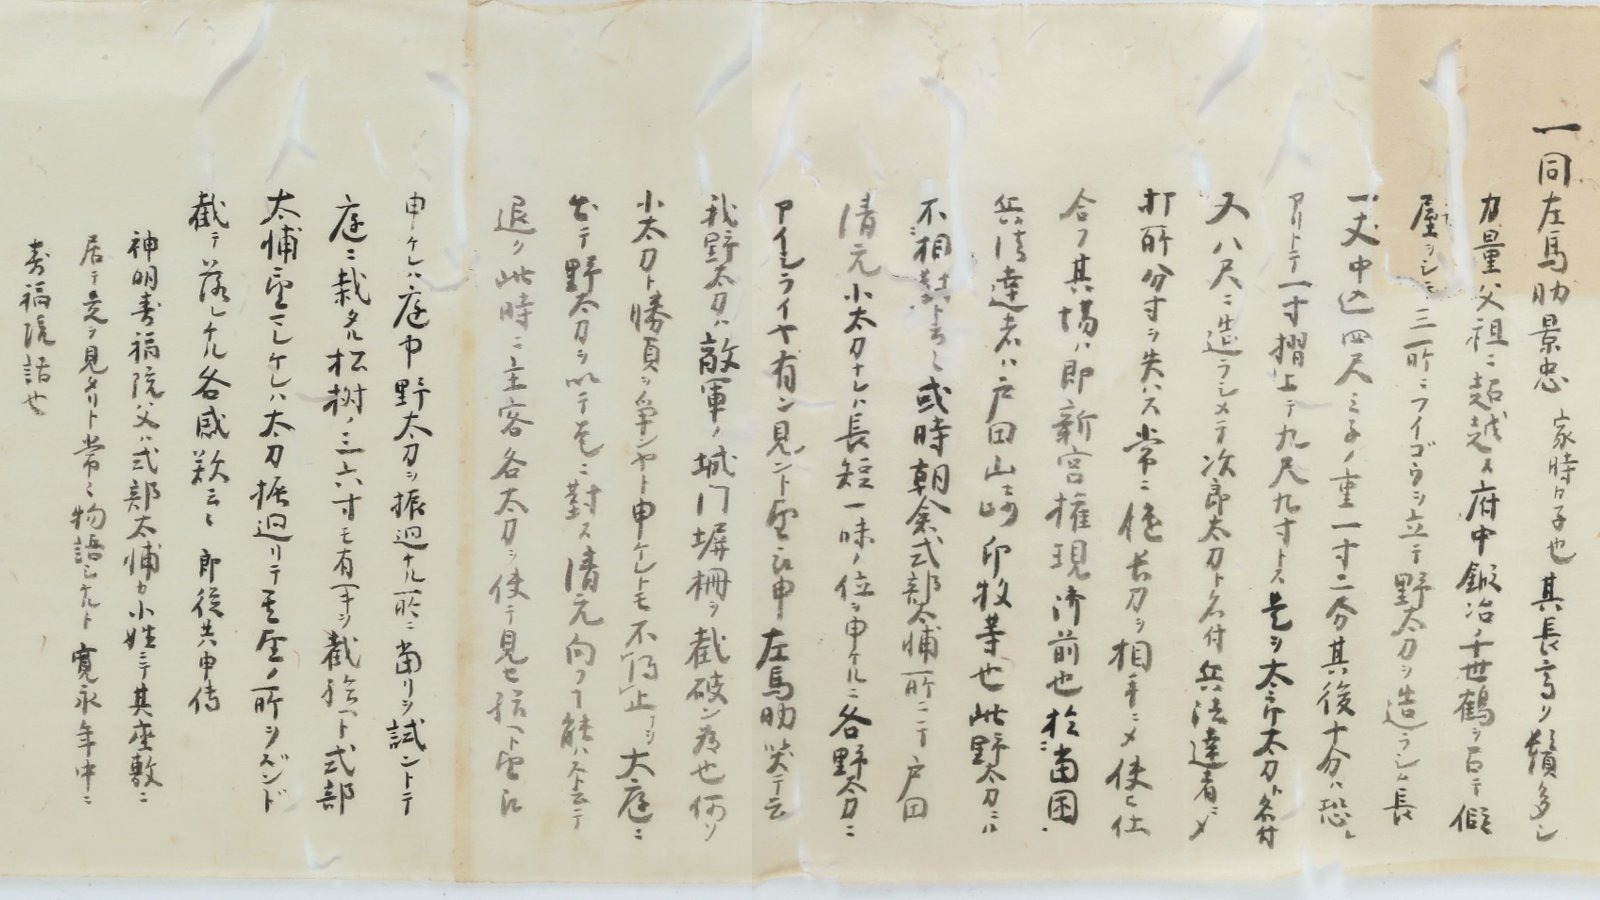 一同左馬助景忠 家時日子也 其長高ク鬚多シ
力量父祖ニ超越ス府中鍛冶千世鶴ヲ召テ假
屋ヲシ 三所ニフイゴウヲ立テ野太刀ヲ造ラシム長
一丈中込四尺ミネノ重一寸二分其後十分ハ恐レ
アリトテ一寸摺上テ九尺九寸トス是ヲ太郎太刀ト名付
又八尺ニ造ラシメテ次郎太刀ト名付兵法達者ニメ
打所分寸ヲ失ハス常ニ 長刀ヲ相手ニメ使ヒ仕
合フ其場ハ即新宮権現済前也於当国
兵法達者ハ戸田山崎印牧等也此野太刀ニハ
不相對ト云々或時朝倉式部太輔所ニテ戸田
清元小太刀ナレハ長短一味ノ位ヲ申ケルニ各野太刀ニ
アイシライヤ有ン見ント云ニ申左馬助笑テ云
我野太刀ハ敵軍ノ城門塀柵ヲ截破ン為也何ソ
小太刀ト勝負ヲ争ンヤト申ケレトモ不得止 大庭ニ
出テ野太刀ヲ以テ是ニ對ス清元向フテ能ハスト云テ
退ク此時ニ主客各太刀ヲ使テ見セ給ヘト云
申ケレハ庭中野太刀ヲ振廻ナル所ニ当リヲ試ントテ
庭ニ栽タル松樹ノ三六寸モ有 ヲ截給ヘト式部
太輔 ケレハ太刀振廻リテ其 ノ所ヲズンド
截テ落シケル各感歎云々 即従共申傳
神明寿福院父ハ式部太輔カ小姓ニテ其座敷ニ
居テ是ヲ見タリト常々物語シケルト寛永年中ニ
寿福院話也